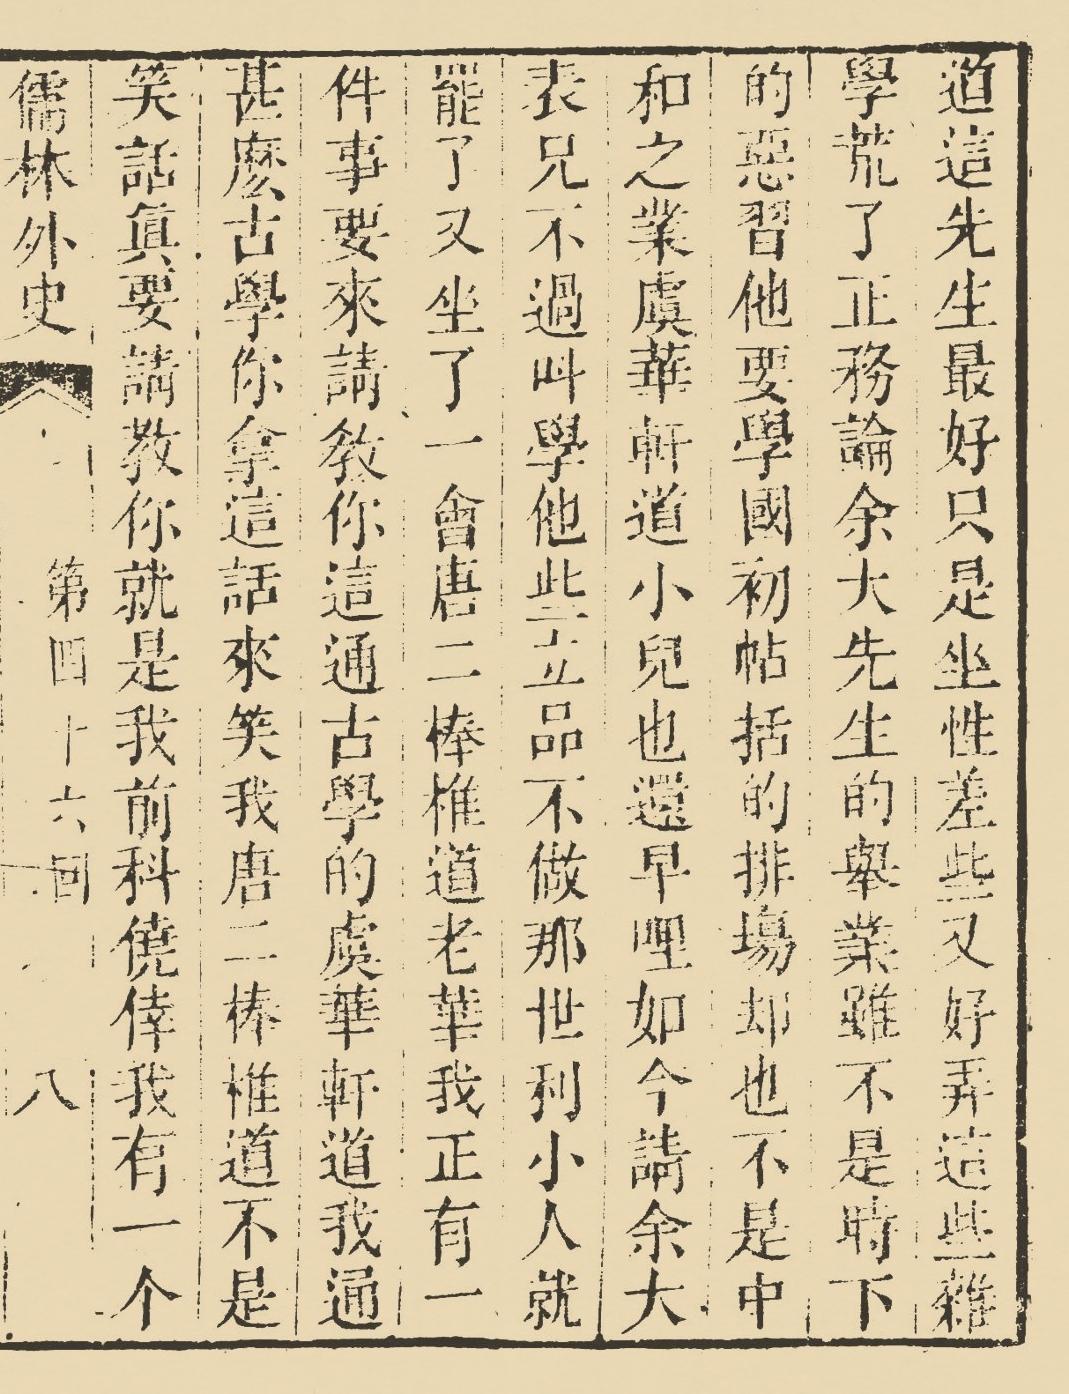 道這先生最好只是坐性差些又好弄這些雜
學荒了正務論余大先生的舉業雖不是時下
的惡習他要學國初帖括的排塲却也不是中
和之業虞華軒道小兒也還早哩如今請余大
表兄不過呌學他些立品不做那世利小人就
罷了又坐了一會唐二棒椎道老華我正有一
件事要來請敎你這通古學的虞華軒道我通
甚麽古學你拿這話來笑我唐二棒椎道不是
笑話眞要請敎你就是我前科僥倖我有一个
儒林外史
第四十六回
八